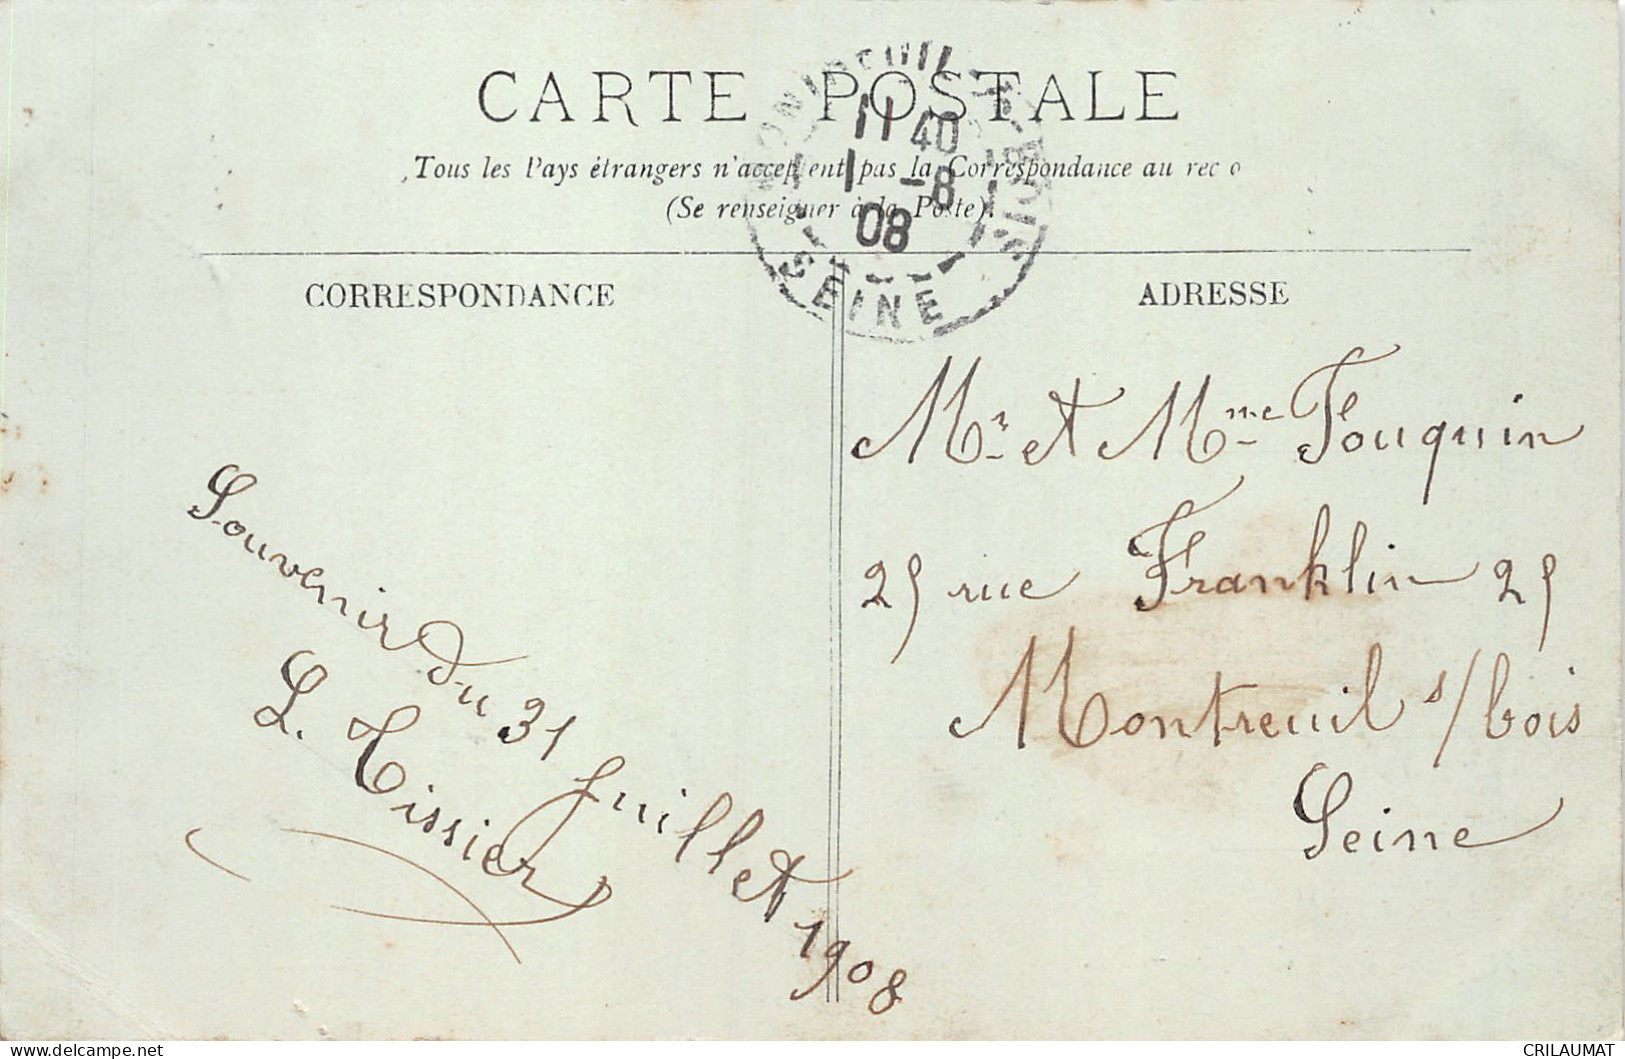 CARTE POSTALE
Tous les Pays étrangers n'acceptent pas la Correspondance au recto
(Se renseigner à la Poste).
MONTREUIL-S-BOIS
11 40
1 -8
08
SEINE
CORRESPONDANCE
ADRESSE
Souvenir du 31 Juillet 1908
L. Tissier
Mr et Mme Fouquin
25 rue Franklin 25
Montreuil s/bois
Seine
delcampe.net
CRILAUMAT